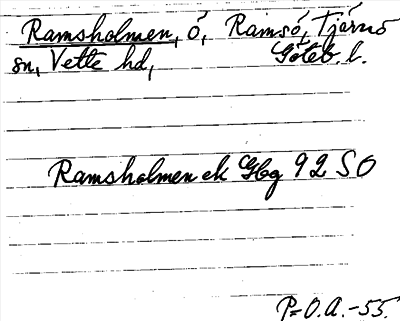 Ramsholmen, ö, Ramsö, Tjärnö
sn, Vette hd, Göteb. l.
Ramsholmen ek Gbg 92 SO
P=O.A.-55.